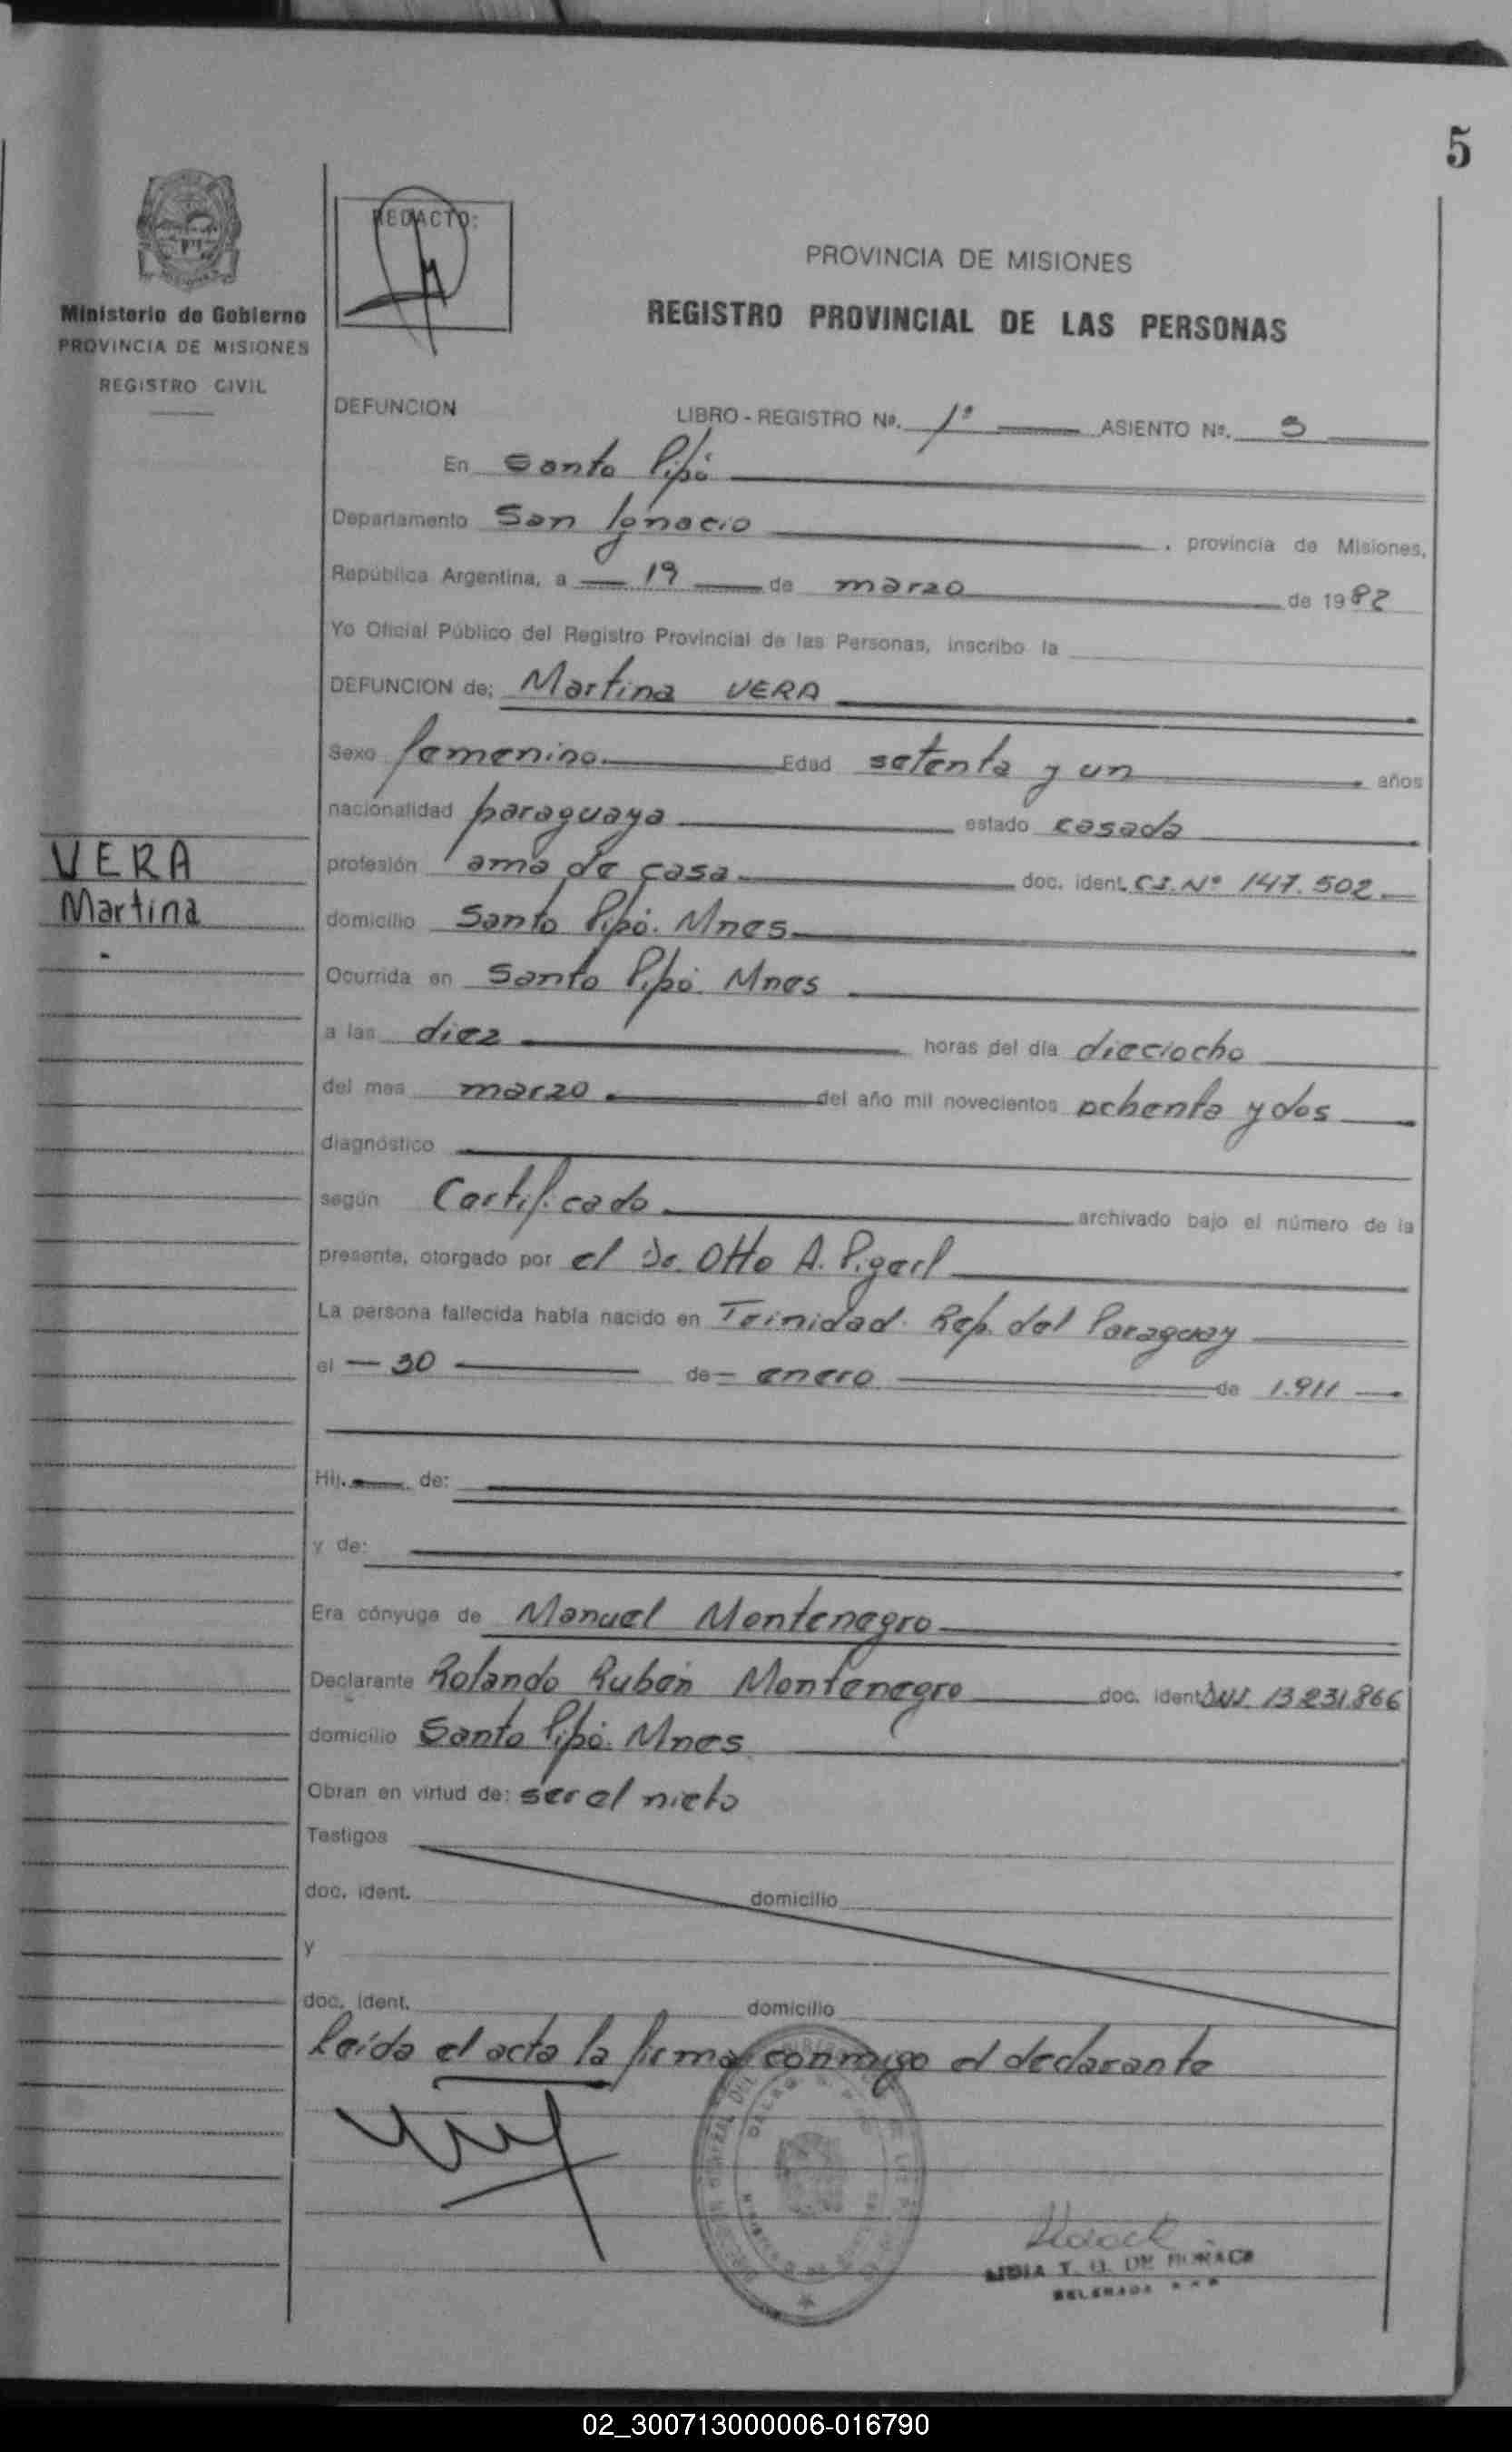 5
REDACTO:
Ministerio de Gobierno
PROVINCIA DE MISIONES
REGISTRO CIVIL
PROVINCIA DE MISIONES
REGISTRO PROVINCIAL DE LAS PERSONAS
DEFUNCION LIBRO - REGISTRO Nº. 1º ASIENTO Nº. 5
En Santo Pipó
Departamento San Ignacio , provincia de Misiones,
República Argentina, a 19 de marzo de 1982
Yo Oficial Público del Registro Provincial de las Personas, inscribo la
DEFUNCION de; Martina VERA
Sexo femenino Edad setenta y un años
nacionalidad paraguaya estado casada
VERA
Martina
profesión ama de casa doc. ident. C.I. Nº 147.502
domicilio Santo Pipó. Mnes
Ocurrida en Santo Pipó. Mnes
a las diez horas del día dieciocho
del mes marzo del año mil novecientos ochenta y dos
diagnóstico
según Certificado archivado bajo el número de la
presente, otorgado por el Dr. Otto A.
La persona fallecida había nacido en Trinidad. Rep. del Paraguay
el 30 de enero de 1.911
Hij. de:
y de:
Era cónyuge de Manuel Montenegro
Declarante Rolando Rubén Montenegro doc. ident DNI. 13.231.866
domicilio Santo Pipó. Mnes
Obran en virtud de: ser el nieto
Testigos
doc. ident. domicilio
y
doc. ident. domicilio
Leída el acta la firma conmigo el declarante
02_300713000006-016790